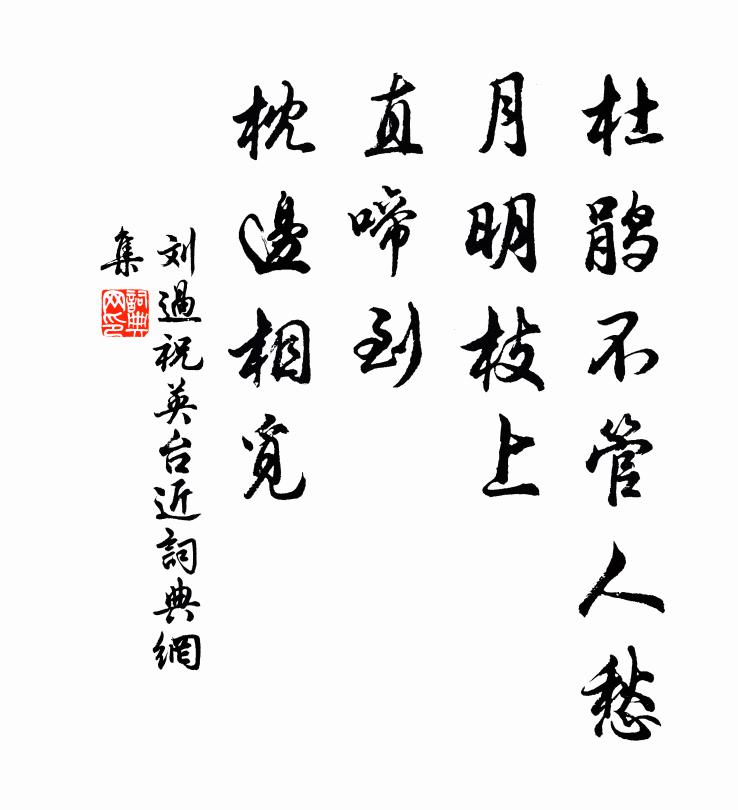 杜鹃不管人愁
月明枝上
直啼到
枕邊相覓
刘過祝英台近詞典網
集
詞典网印